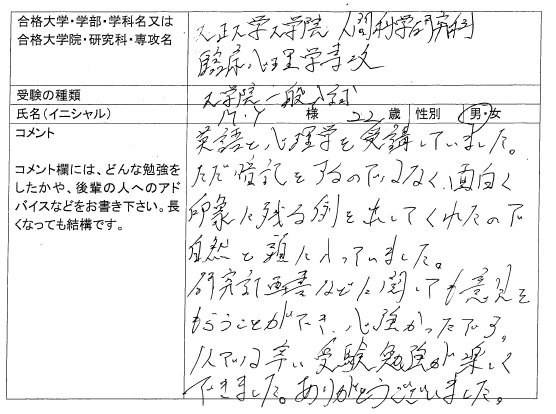 合格大学・学部・学科名又は
合格大学院・研究科・専攻名
大正大学大学院 人間科学研究科
臨床心理学専攻
受験の種類
大学院一般入試
氏名(イニシャル)
M.Y 様 22 歳 性別 男・女
コメント
コメント欄には、どんな勉強を
したかや、後輩の人へのアド
バイスなどをお書き下さい。長
くなっても結構です。
英語と心理学を受講していました。
ただ暗記をするのではなく、面白く
印象に残る例を出してくれたので
自然と頭に入っていました。
研究計画書などに関しても意見を
もらうことができ、心強かったです。
辛い受験勉強が楽しく
できました。ありがとうございました。